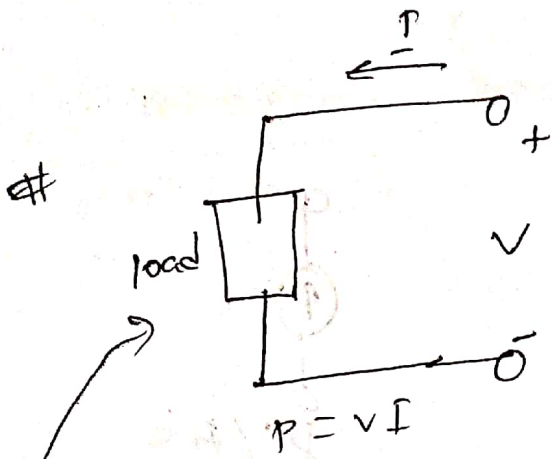 I
+
#
load
V
-
P = VI